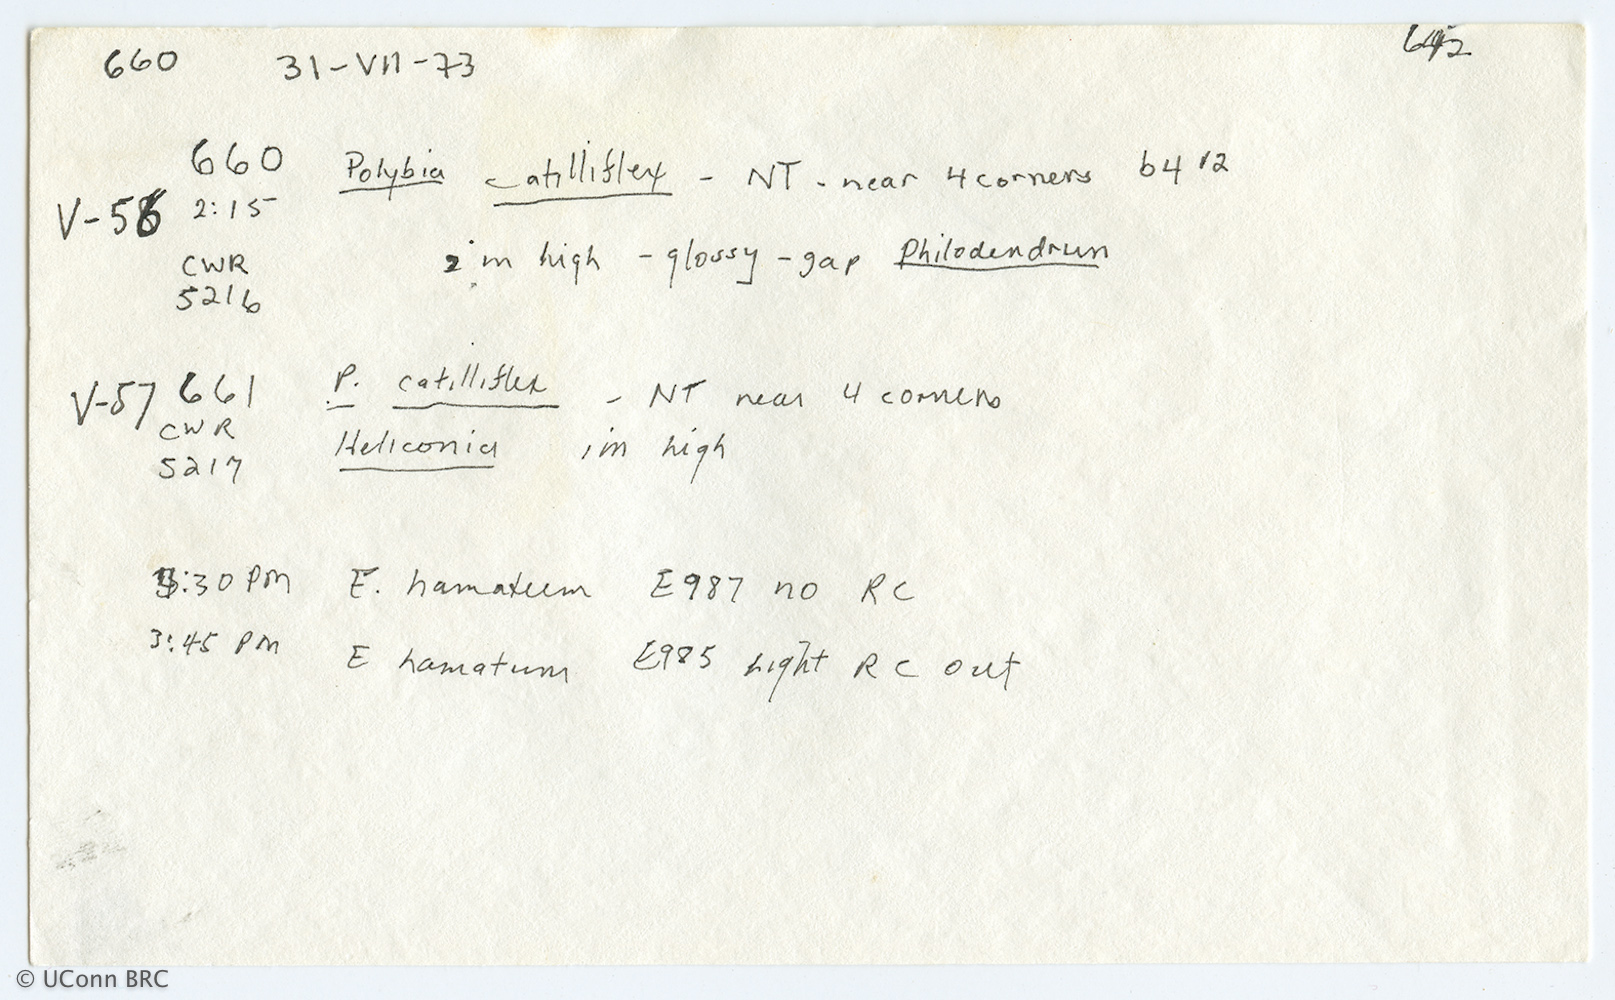 660 31-VII-73 642
660 Polybia catillifex - NT - near 4 corners 64 12
V-56 2:15
CWR 2 m high - glossy - gap Philodendrun
5216
V-57 661 P. catillifex - NT near 4 corners
CWR Heliconia 1m high
5217
3:30 PM E. hamateum E987 no RC
3:45 PM E hamatum E985 hight RC out
© UConn BRC